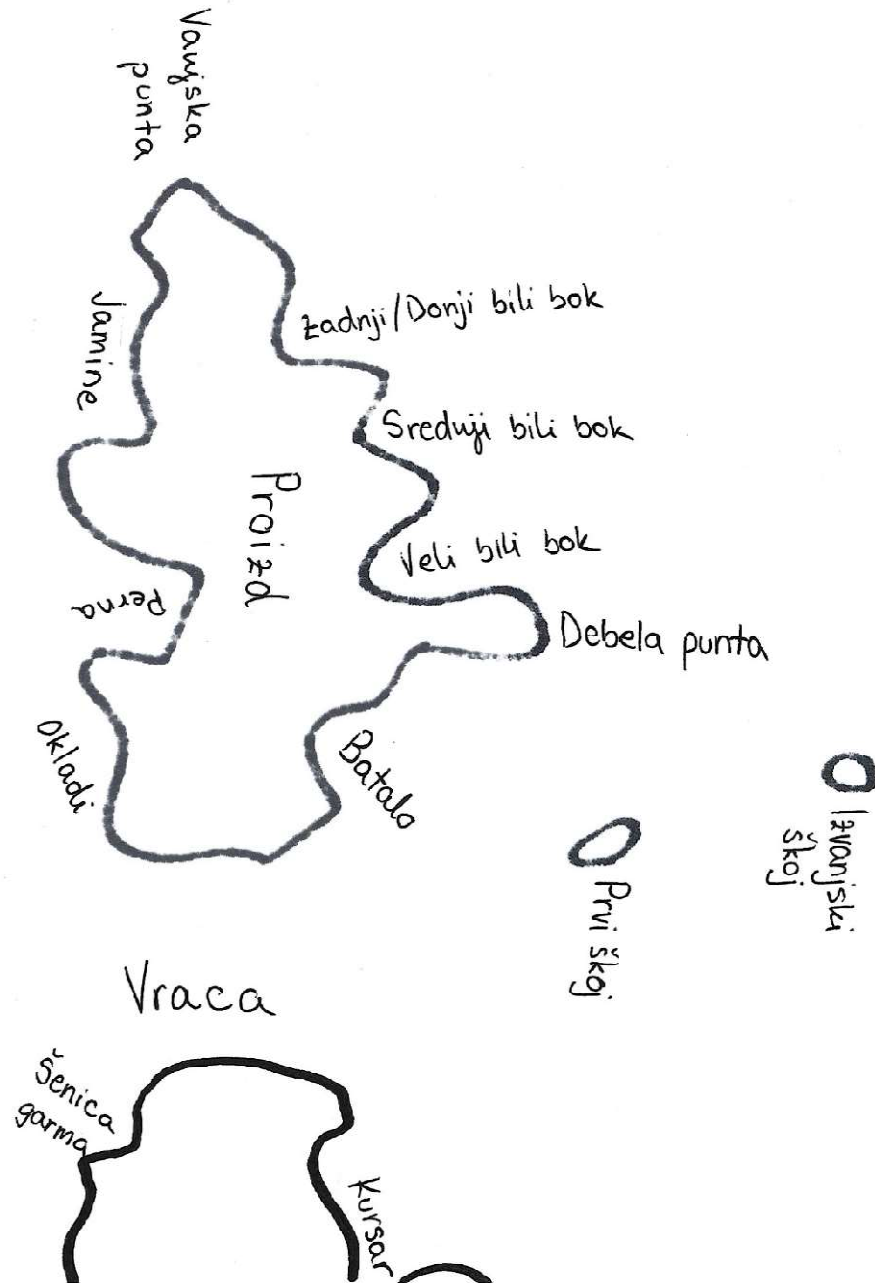 Vanjska
punta
Zadnji/Donji bili bok
Jamine
Srednji bili bok
Proizd
Veli bili bok
Perna
Debela punta
Okladi
Batalo
Izvanjski
škoj
Prvi škoj
Vraca
Šenica
garma
Kursar